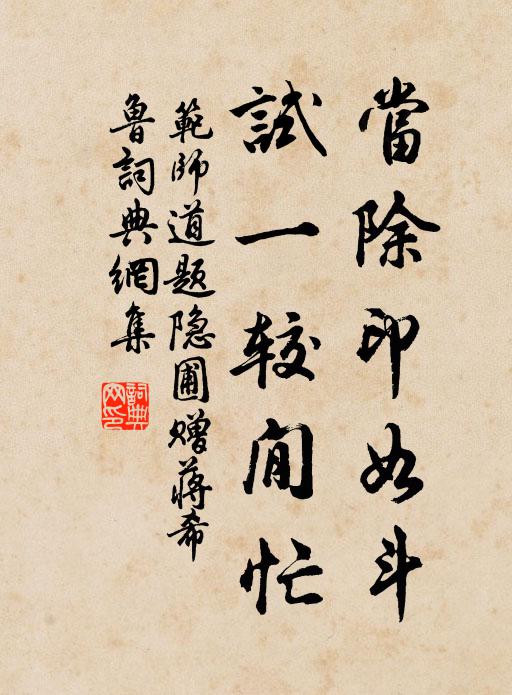 當除印如斗
試一較閒忙
範師道題隐圃赠蔣希
魯詞典網集
詞典網印